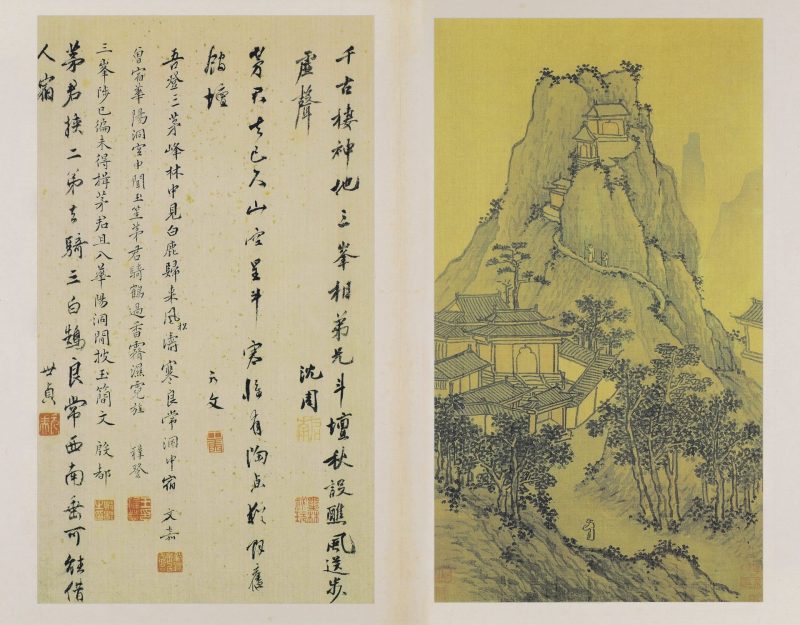 千古棲神地三峯相弟兄斗壇秋設醮風送步
虛聲 沈周
茅君去已久山空星斗寒惟有陶
舊
館壇 允文
吾登三茅峰林中見白鹿歸来松風濤寒良常洞中宿 文嘉
曾宿華陽洞空中聞玉笙茅君騎鶴過香霧濕霓旌 穉登
三峯陟已徧未得揖茅君且入華陽洞閒披玉簡文 殷都
茅君挾二弟去騎三白鵠良常西南垂可能借
人宿 世貞